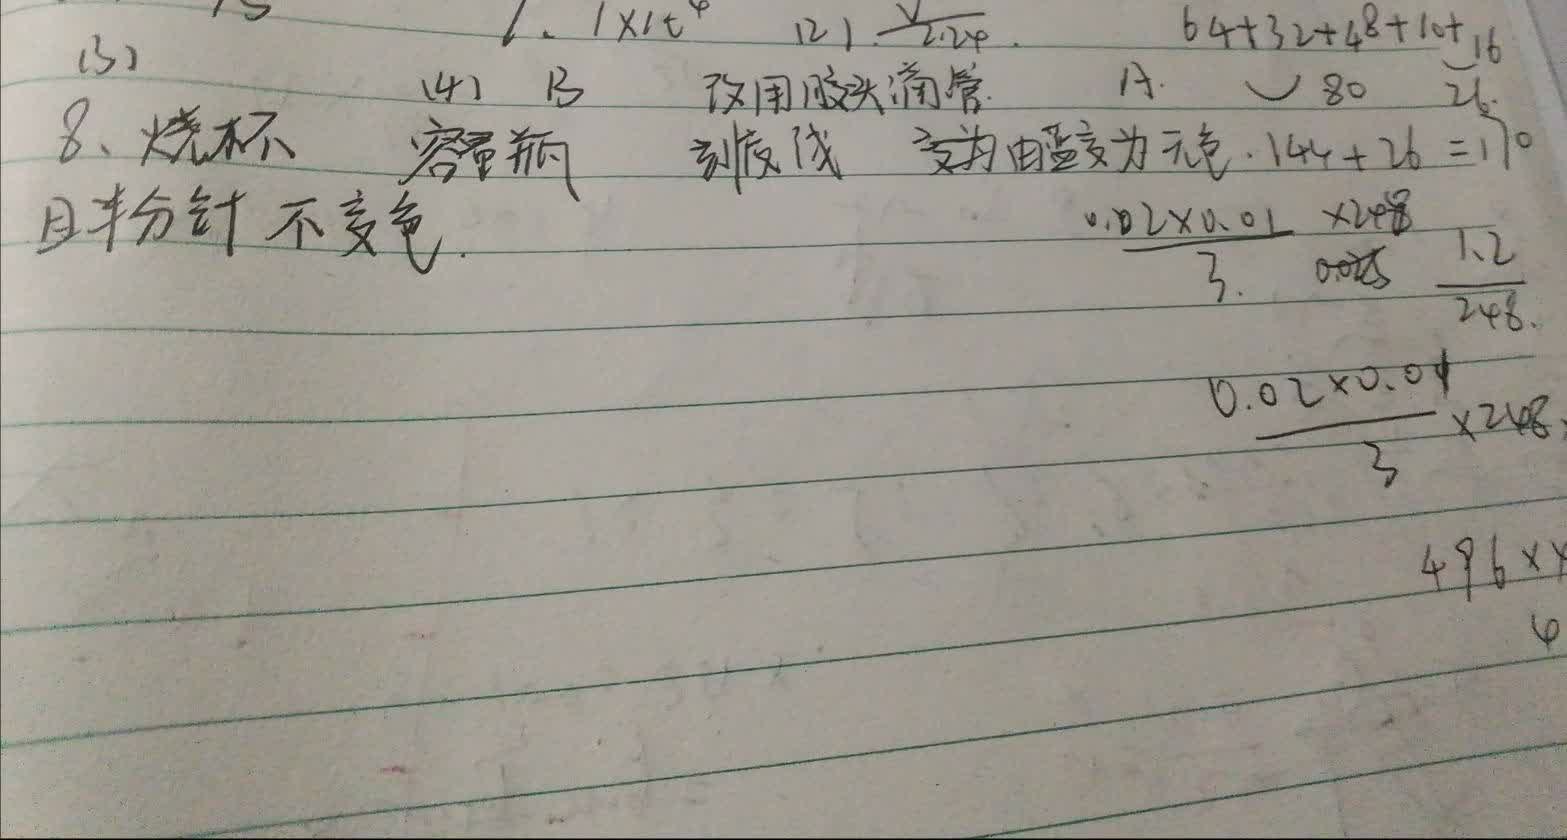 7. 1×10⁴ (2). V/2.24. 64+32+48+10+16
(3) (4) B 改用胶头滴管. A. 80 26.
8、烧杯 容量瓶 刻度线 变为由蓝变为无色. 144+26=170
且半分钟不变色.
0.02×0.01/3. ×248 1.2/248.
0.02×0.01/3 ×248
496×
6